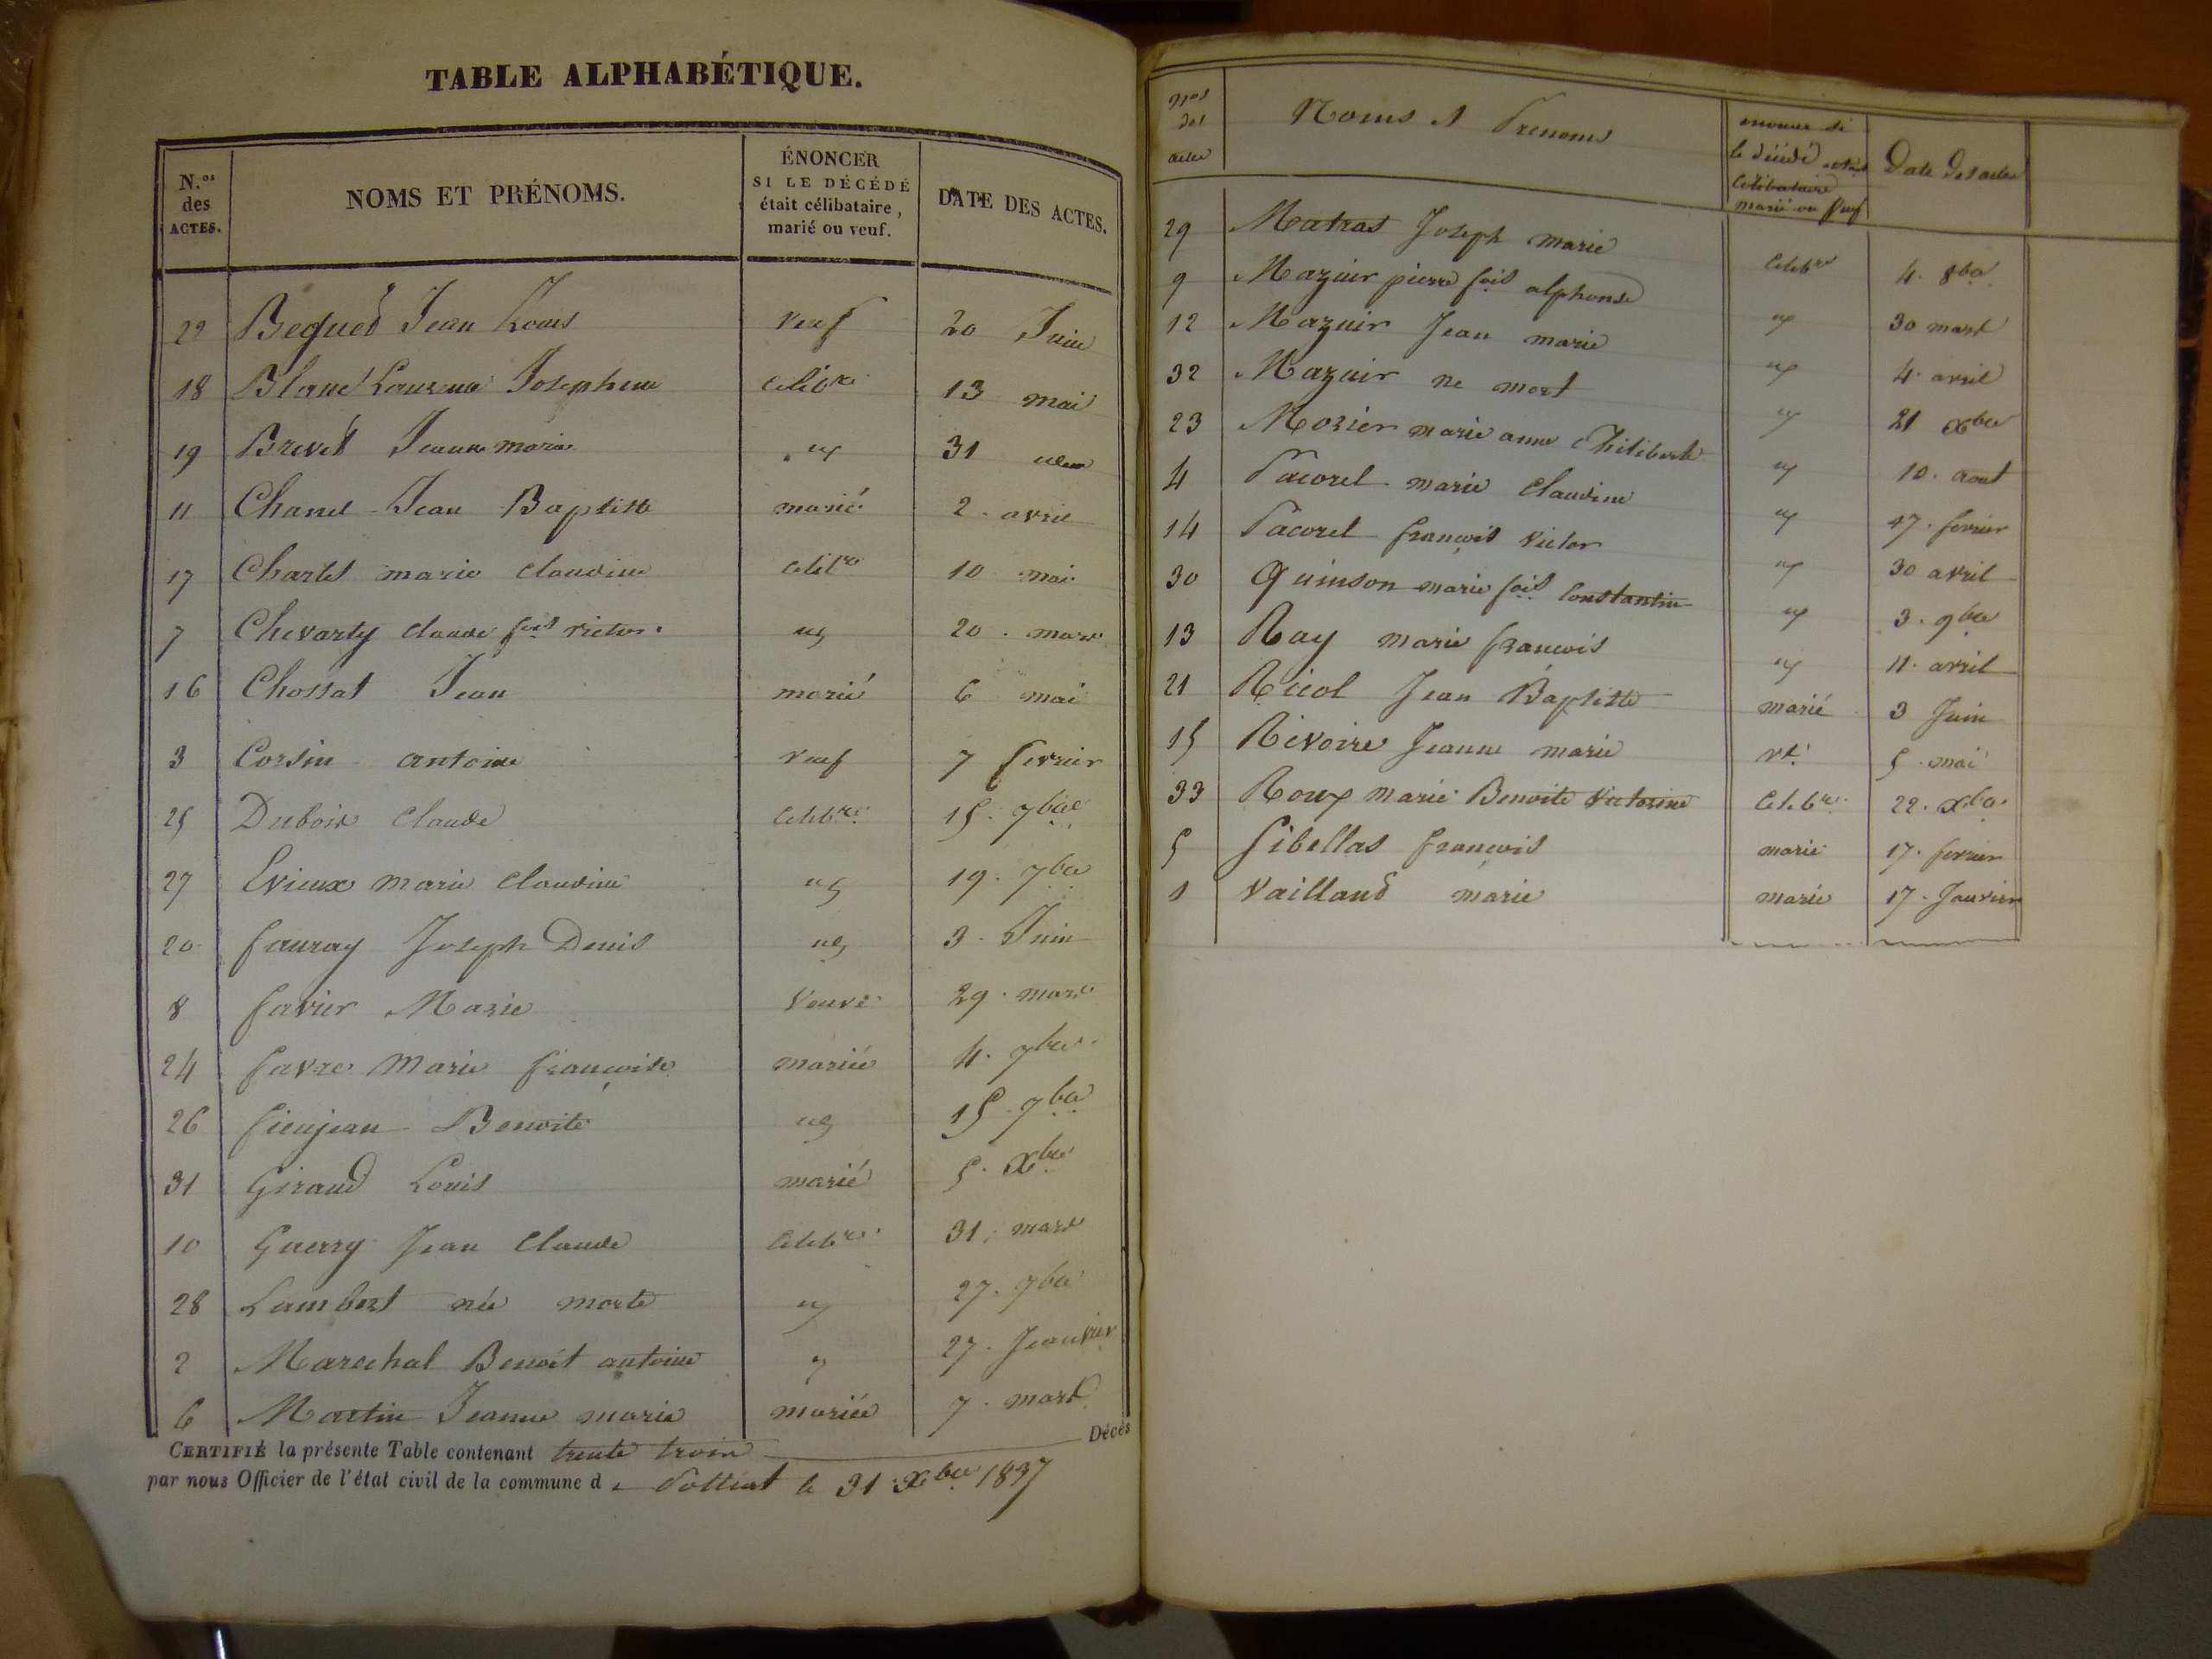 TABLE ALPHABÉTIQUE.
N.os des ACTES.
NOMS ET PRÉNOMS.
ÉNONCER SI LE DÉCÉDÉ était célibataire, marié ou veuf.
DATE DES ACTES.
22 Bequet Jean Louis veuf 20 Juin
18 Blanc Josephine celib.re 13 mai
19 Brevet Jeanne marie " 31 idem
11 Chanel Jean Baptiste marié 2. avril
17 Charles marie claudine celib.re 10 mai
7 Chevarty claude fois victor. " 20. mars
16 Chossat Jean marié 6 mai
3 Corsin antoine veuf 7 fevrier
25 Dubois claude Celib.re 15. 7bre
27 Evieux marie claudine " 19. 7bre
20 fauray Joseph Denis " 3. Juin
8 favier Marie Veuve 29. mars
24 favre Marie françoise mariée 4. 7bre
26 fieujean Benoite " 15. 7bre
31 Giraud Louis marié 5. Xbre
10 Guerry Jean Claude Celib.re 31. mars
28 Lambert née morte " 27. 7bre
2 Marechal Benoit antoine " 27. Janvier
6 Martin Jeanne marie mariée 7. mars
CERTIFIÉ la présente Table contenant trente trois Décès
par nous Officier de l'état civil de la commune d e Polliat le 31. Xbre 1837
Nos des actes
Noms & Prenoms
enoncer si le décédé etait Celibataire marié ou Veuf
Date des actes
29 Matras Joseph marie Celib.re 4. 8bre
9 Mazuir pierre fois alphonse " 30 mars
12 Mazuir Jean marie " 4. avril
32 Mazuir ne mort " 21 Xbre
23 Morier marie anne Philiberte " 10. aout
4 Pacorel marie claudine " 17. fevrier
14 Pacorel françois victor " 30 avril
30 Quinson marie fois Constantin " 3. 9bre
13 Ray marie françois " 11. avril
21 Ricol Jean Baptiste marié 3 Juin
15 Rivoire Jeanne marie ve. 5. mai
33 Roux marie Benoite Victorine Celib.re 22. Xbre
5 Sibellas françois marié 17. fevrier
1 Vailland marie marié 17. Janvier